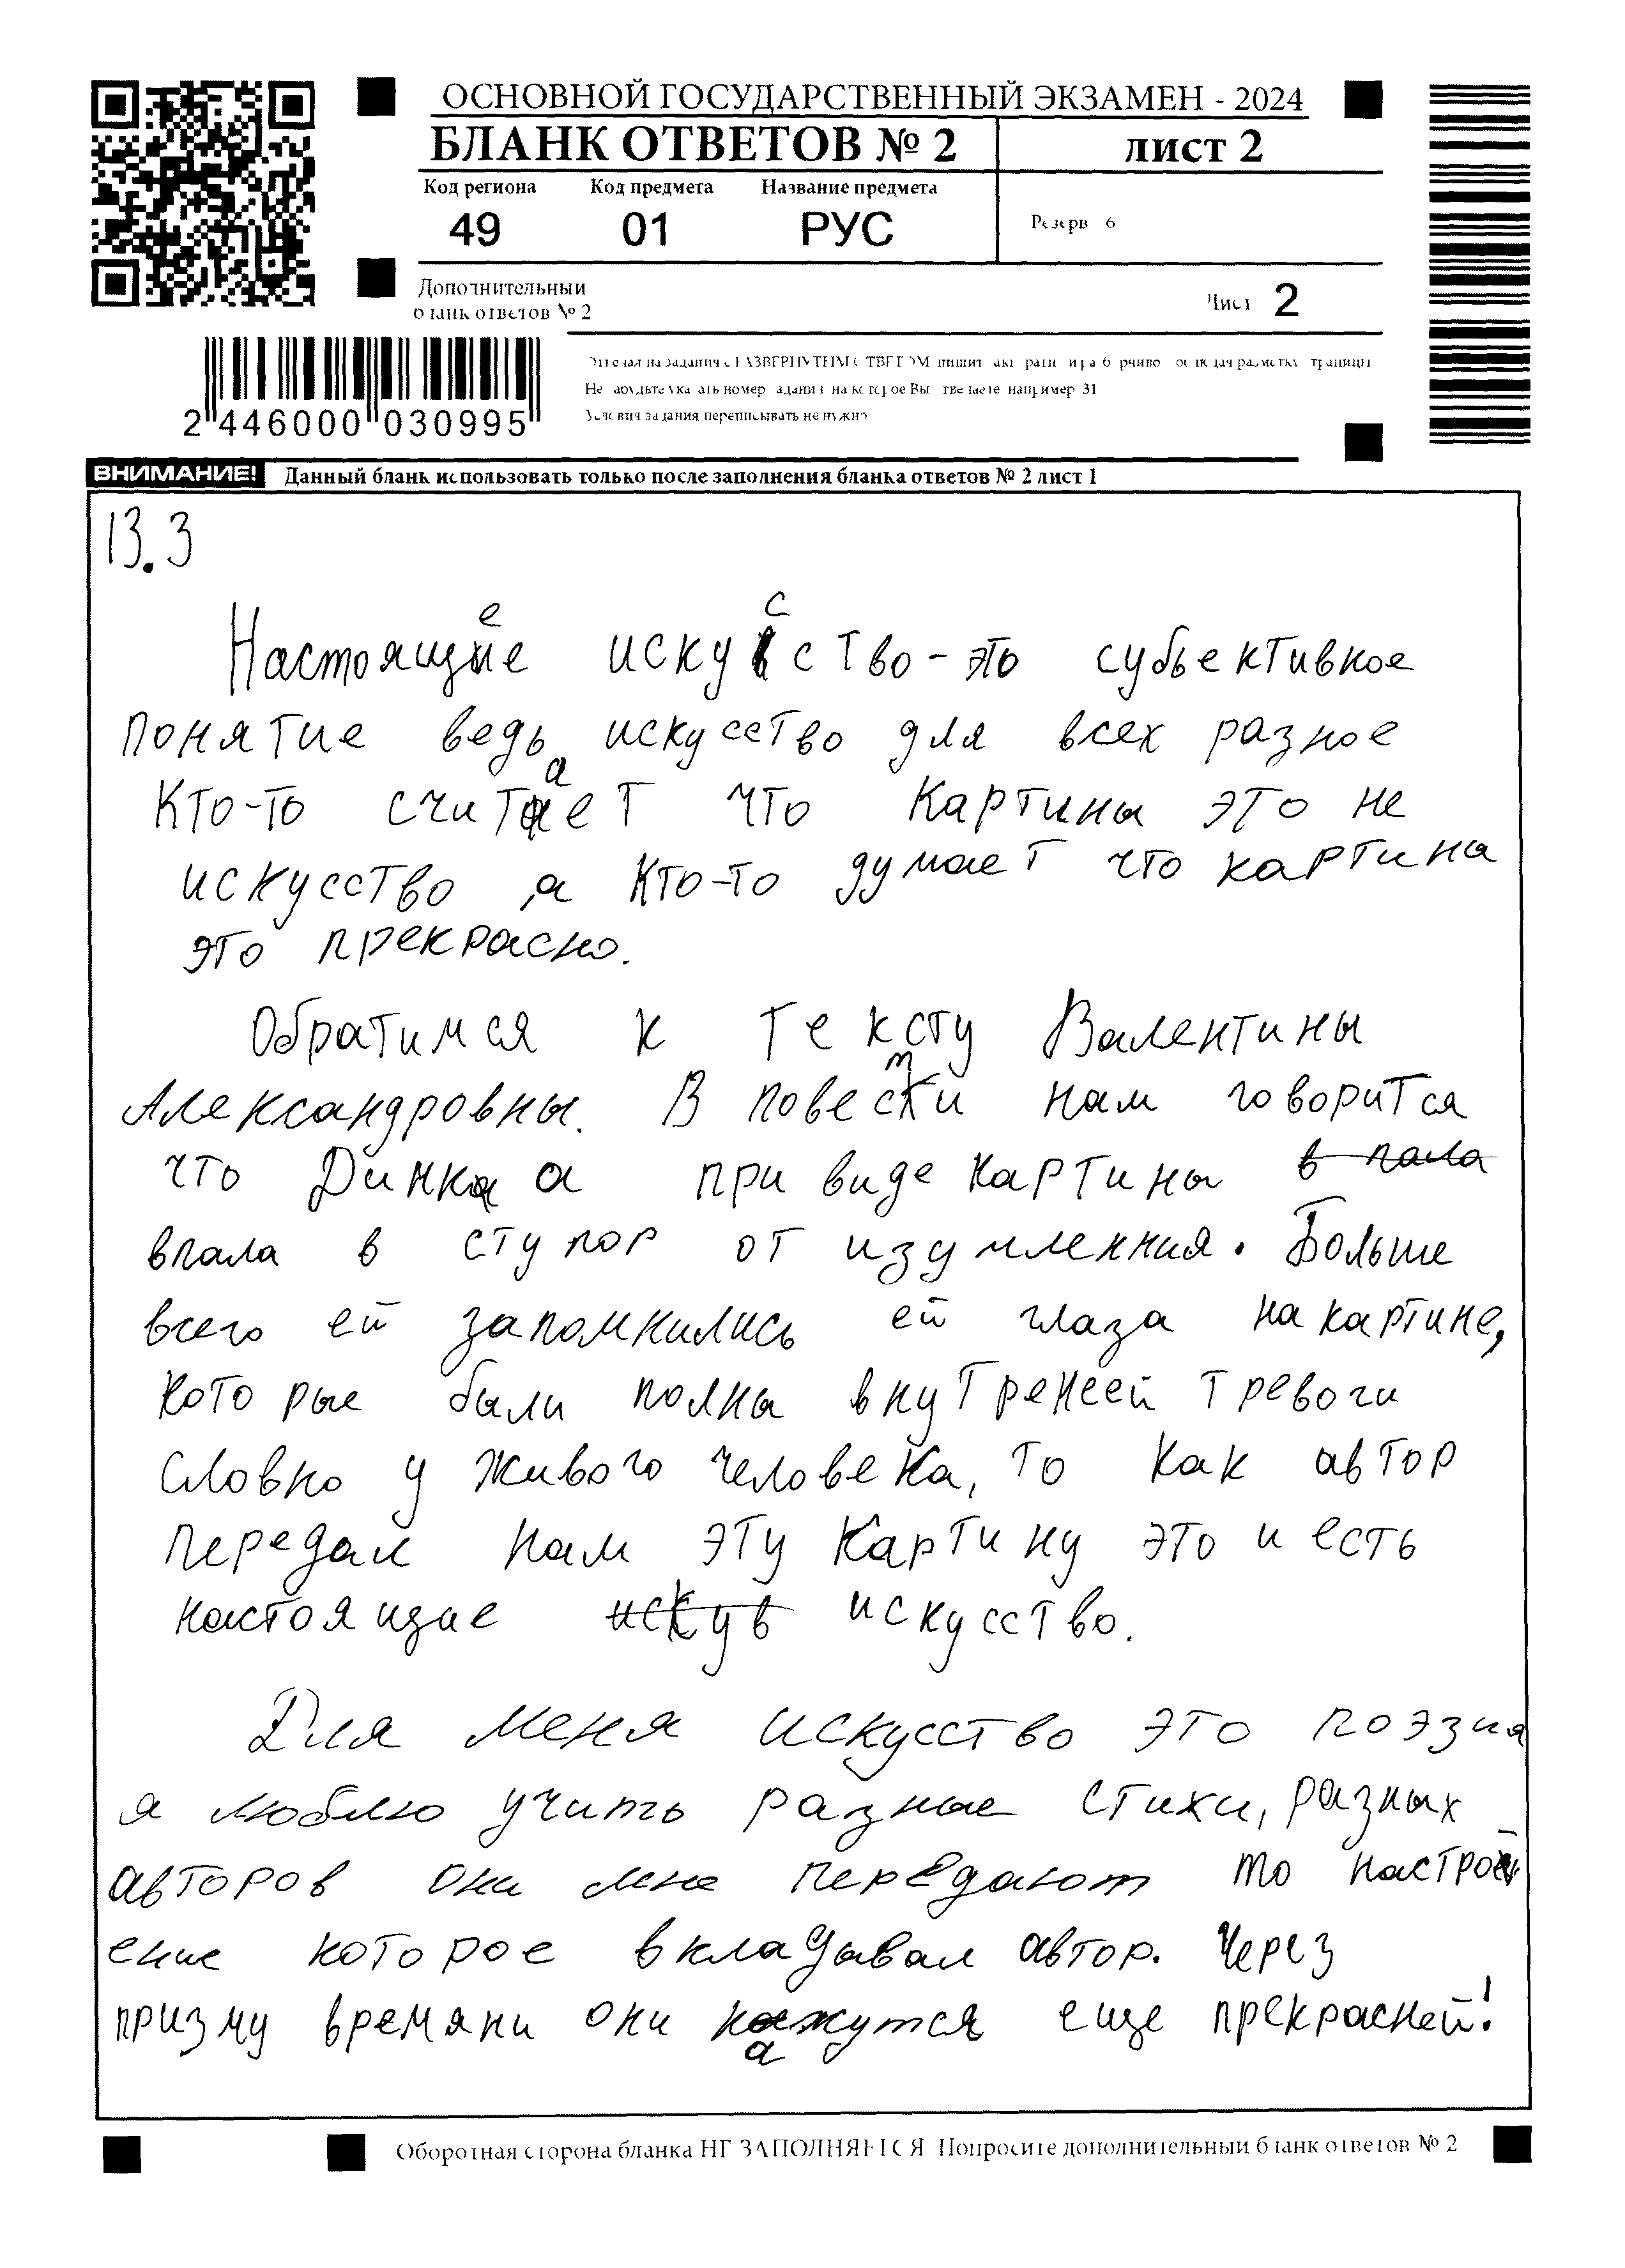 ОСНОВНОЙ ГОСУДАРСТВЕННЫЙ ЭКЗАМЕН - 2024
БЛАНК ОТВЕТОВ № 2 лист 2
Код региона Код предмета Название предмета
49 01 РУС
Резерв 6
Дополнительный
бланк ответов № 2
Лист 2
2 446000 030995
Условия задания переписывать не нужно
ВНИМАНИЕ! Данный бланк использовать только после заполнения бланка ответов № 2 лист 1
13.3
Настоящее искусство - это субьективное
понятие ведь искусство для всех разное
Кто-то считает что картины это не
искусство ,а кто-то думает что картина
это прекрасно.
Обратимся к тексту Валентины
Александровны. В повести нам говорится
что Динка при виде картины в пала
впала в ступор от изумления. Больше
всего ей запомнились ей глаза на картине,
которые были полны внутреней тревоги
словно у живого человека, то как автор
передал нам эту картину это и есть
настоящие искув искусство.
Для меня искусство это поэзия
я люблю учить разные стихи, разных
авторов они мне передают то настро
ение которое вкладывал автор. Через
призму времяни они кажутся еще прекрасней!
Оборотная сторона бланка НЕ ЗАПОЛНЯЕТСЯ Попросите дополнительный бланк ответов № 2